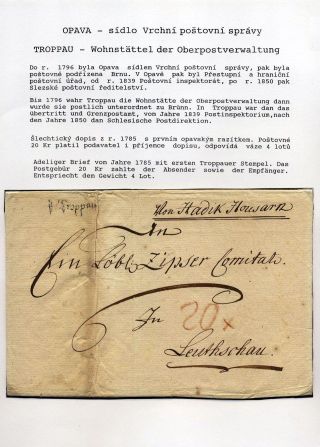 OPAVA - sídlo Vrchní poštovní správy
TROPPAU - Wohnstättel der Oberpostverwaltung
Do r. 1796 byla Opava sídlem Vrchní poštovní správy, pak byla
poštovně podřízena Brnu. V Opavě pak byl Přestupní a hraniční
poštovní úřad, od r. 1839 Poštovní inspektorát, po r. 1850 pak
Slezské poštovní ředitelství.
Bis 1796 wahr Troppau die Wohnstätte der Oberpostverwaltung dann
wurde sie postlich unterordnet zu Brünn. In Troppau war dan das
übertritt und Grenzpostamt, von Jahre 1839 Postinspektorium, nach
den Jahre 1850 dan Schlesische Postdirektion.
Šlechtický dopis z r. 1785 s prvním opavským razítkem. Poštovné
20 Kr platil podavatel i příjemce dopisu, odpovídá váze 4 lotů
Adeliger Brief von Jahre 1785 mit ersten Troppauer Stempel. Das
Postgebür 20 Kr zahlte der Absender sowie der Empfänger.
Entspriecht den Gewicht 4 Lot.
v. Troppau
Von Hadik Housarn
In
Ein Löbl. Zipser Comitat.
In
20x
Leuthschau.